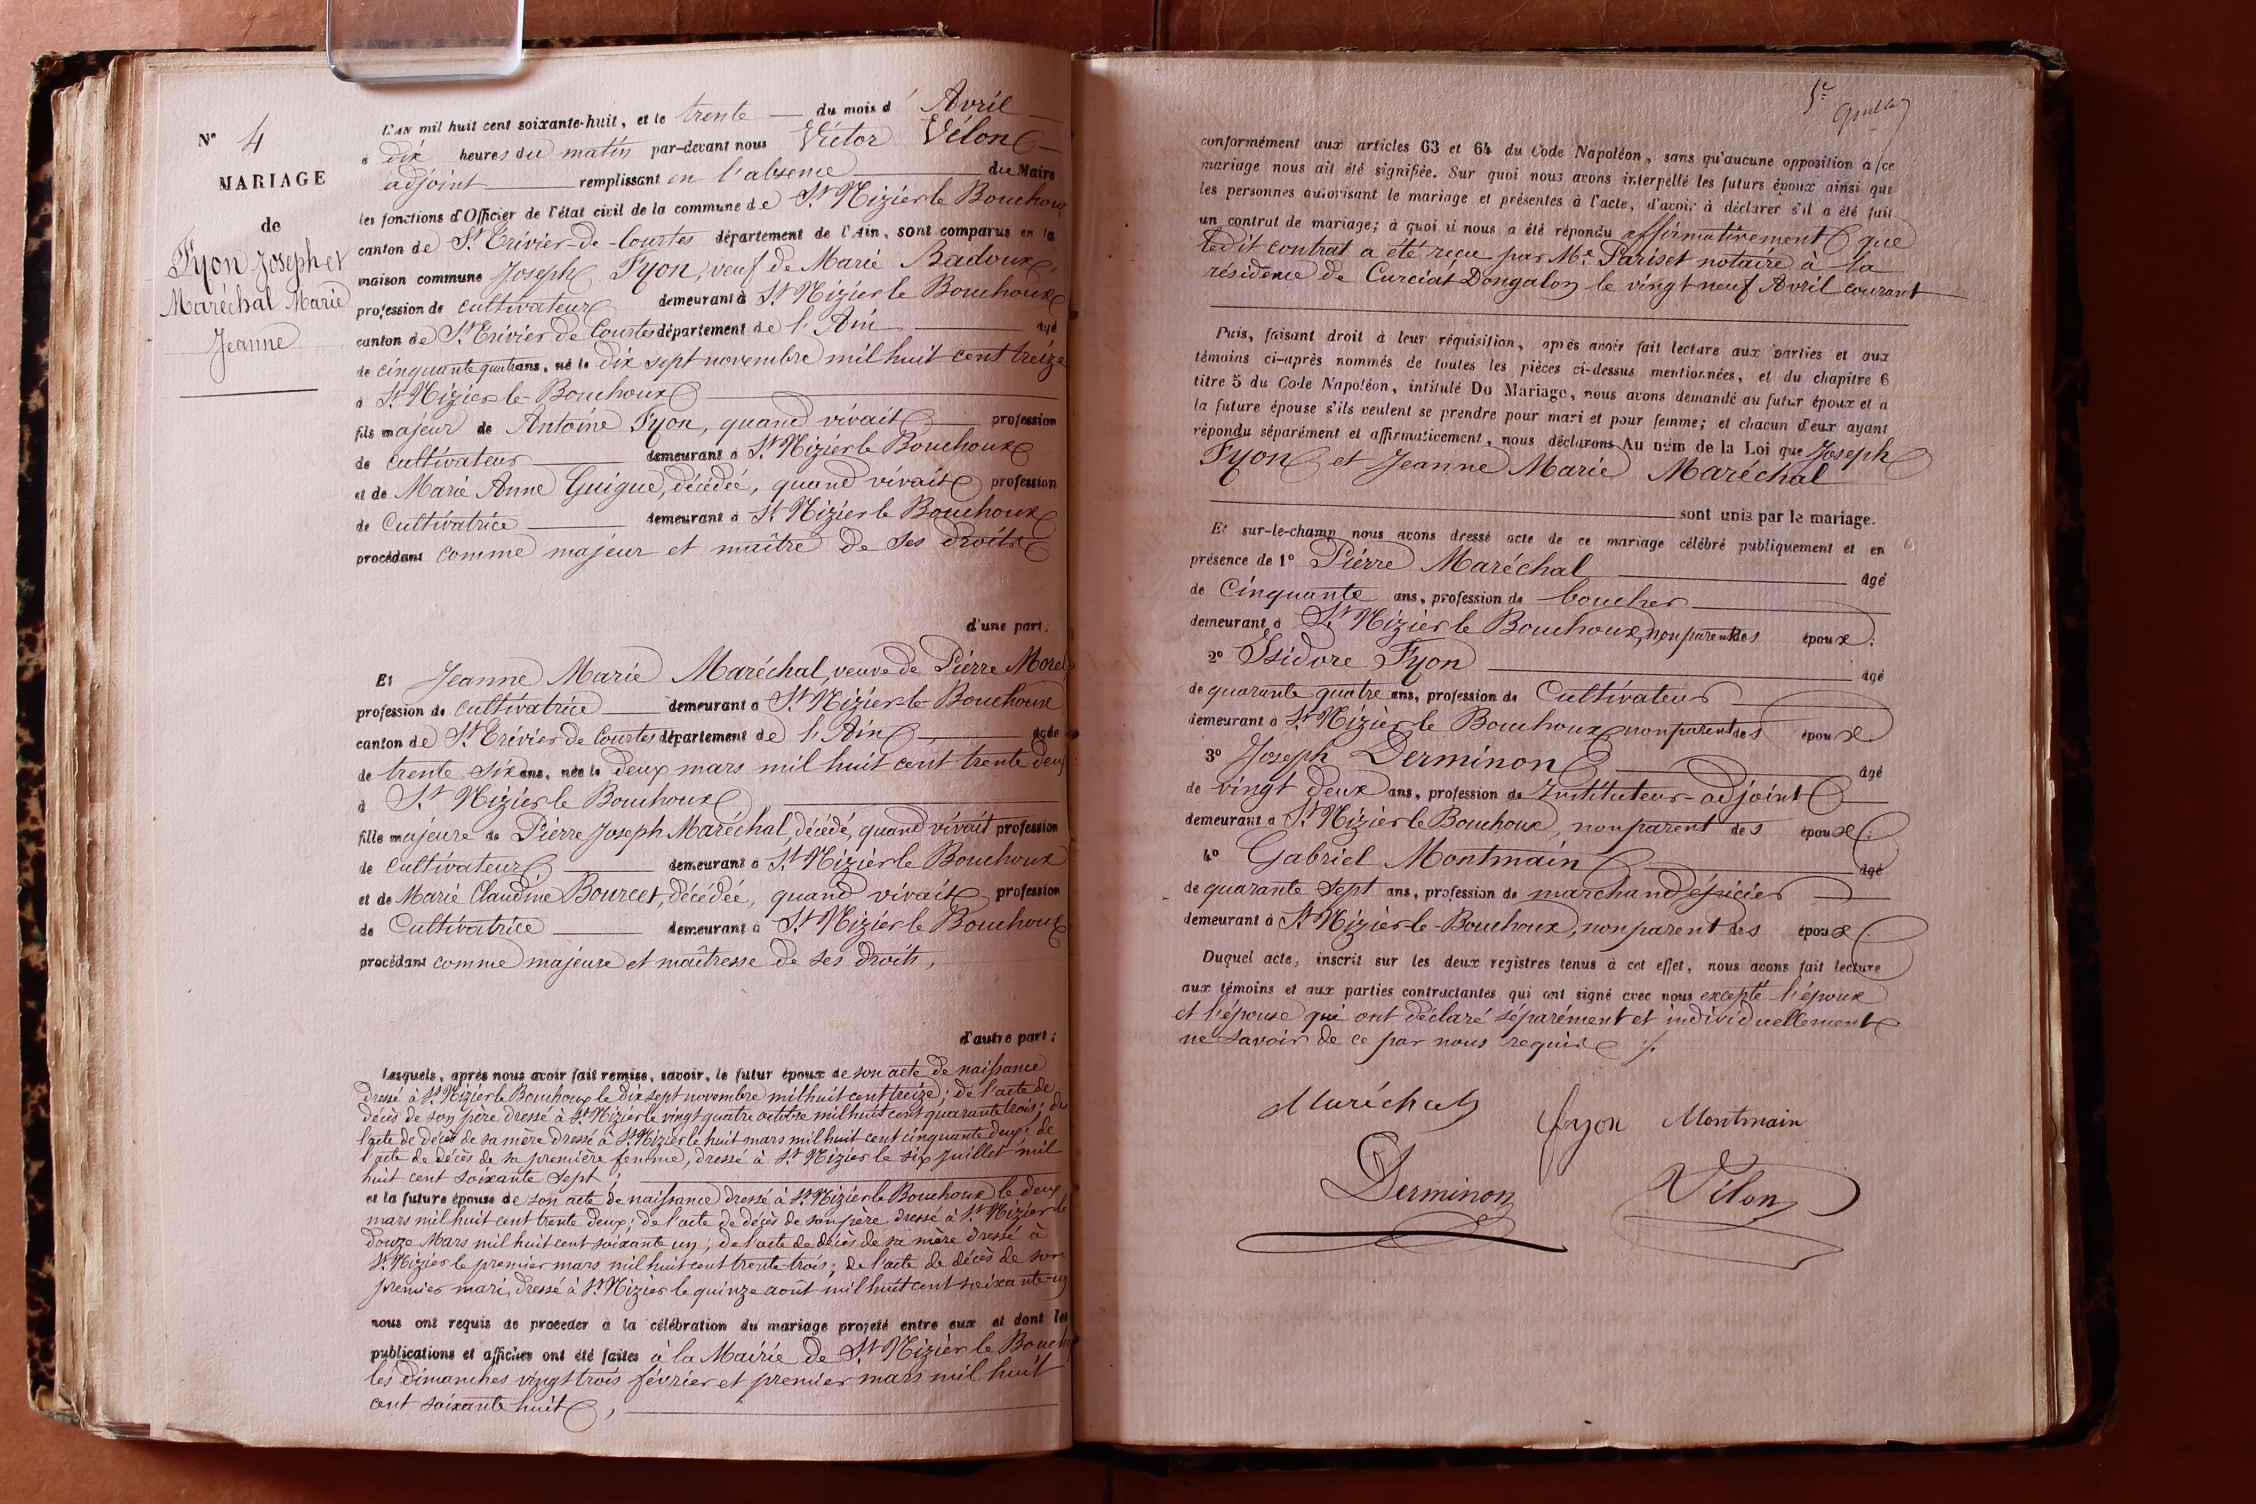 N° 4
MARIAGE
de
Fyon Joseph et
Maréchal Marie
Jeanne
L'AN mil huit cent soixante-huit, et le trente du mois d'Avril
à dix heures du matin par-devant nous Victor Vélon
adjoint remplissant en l'absence du Maire
les fonctions d'Officier de l'état civil de la commune de St Nizier le Bouchoux
canton de St Trivier-de-Courtes département de l'Ain, sont comparus en la
maison commune Joseph Fyon, veuf de Marie Badoux,
profession de cultivateur demeurant à St Nizier le Bouchoux
canton de St Trivier de Courtes département de l'Ain âgé
de cinquante quatre ans, né le dix sept novembre mil huit cent treize
à St Nizier le Bouchoux
fils majeur de Antoine Fyon, quand vivait profession
de cultivateur demeurant à St Nizier le Bouchoux
et de Marie Anne Guigue, décédée, quand vivait profession
de Cultivatrice demeurant à St Nizier le Bouchoux
procédant comme majeur et maître de ses droits
d'une part;
Et Jeanne Marie Maréchal, veuve de Pierre Morel
profession de cultivatrice demeurant à St Nizier le Bouchoux
canton de St Trivier de Courtes département de l'Ain, âgée
de trente six ans, née le deux mars mil huit cent trente deux
à St Nizier le Bouchoux
fille majeure de Pierre Joseph Maréchal, décédé, quand vivait profession
de cultivateur demeurant à St Nizier le Bouchoux
et de Marie Claudine Bourcet, décédée, quand vivait profession
de Cultivatrice demeurant à St Nizier le Bouchoux
procédant comme majeure et maîtresse de ses droits,
d'autre part;
Lesquels, après nous avoir fait remise, savoir, le futur époux de son acte de naissance
dressé à St Nizier le Bouchoux le dix sept novembre mil huit cent treize; de l'acte de
décès de son père dressé à St Nizier le vingt quatre octobre mil huit cent quarante trois; de
l'acte de décès de sa mère dressé à St Nizier le huit mars mil huit cent cinquante deux; de
l'acte de décès de sa première femme, dressé à St Nizier le six juillet mil
huit cent soixante sept;
et la future épouse de son acte de naissance dressé à St Nizier le Bouchoux le deux
mars mil huit cent trente deux; de l'acte de décès de son père dressé à St Nizier le
douze Mars mil huit cent soixante un; de l'acte de décès de sa mère dressé à
St Nizier le premier mars mil huit cent trente trois; de l'acte de décès de son
premier mari, dressé à St Nizier le quinze août mil huit cent soixante-un
nous ont requis de procéder à la célébration du mariage projeté entre eux et dont les
publications et affiches ont été faites à la Mairie de St Nizier le Bouch
les dimanches vingt trois février et premier mars mil huit
cent soixante huit,
conformément aux articles 63 et 64 du Code Napoléon, sans qu'aucune opposition à ce
mariage nous ait été signifiée. Sur quoi nous avons interpellé les futurs époux ainsi que
les personnes autorisant le mariage et présentes à l'acte, d'avoir à déclarer s'il a été fait
un contrat de mariage; à quoi il nous a été répondu affirmativement que
ledit contrat a été reçu par Me Pariset notaire à la
résidence de Curciat Dongalon le vingt neuf Avril courant
Puis, faisant droit à leur réquisition, après avoir fait lecture aux parties et aux
témoins ci-après nommés de toutes les pièces ci-dessus mentionnées, et du chapitre 6
titre 5 du Code Napoléon, intitulé Du Mariage, nous avons demandé au futur époux et à
la future épouse s'ils veulent se prendre pour mari et pour femme; et chacun d'eux ayant
répondu séparément et affirmativement, nous déclarons Au nom de la Loi que Joseph
Fyon et Jeanne Marie Maréchal
sont unis par le mariage.
Et sur-le-champ nous avons dressé acte de ce mariage célébré publiquement et en
présence de 1° Pierre Maréchal âgé
de Cinquante ans, profession de boucher
demeurant à St Nizier le Bouchoux, non parent des époux;
2° Isidore Fyon âgé
de quarante quatre ans, profession de Cultivateur
demeurant à St Nizier le Bouchoux non parent des époux.
3° Joseph Derminon âgé
de vingt deux ans, profession de Instituteur-adjoint
demeurant à St Nizier le Bouchoux, non parent des époux;
4° Gabriel Montmain âgé
de quarante sept ans, profession de marchand épicier
demeurant à St Nizier-le-Bouchoux, non parent des époux
Duquel acte, inscrit sur les deux registres tenus à cet effet, nous avons fait lecture
aux témoins et aux parties contractantes qui ont signé avec nous excepté l'époux
et l'épouse qui ont déclaré séparément et individuellement
ne savoir de ce par nous requis ./.
Maréchal
fyon Montmain
Derminon Vélon